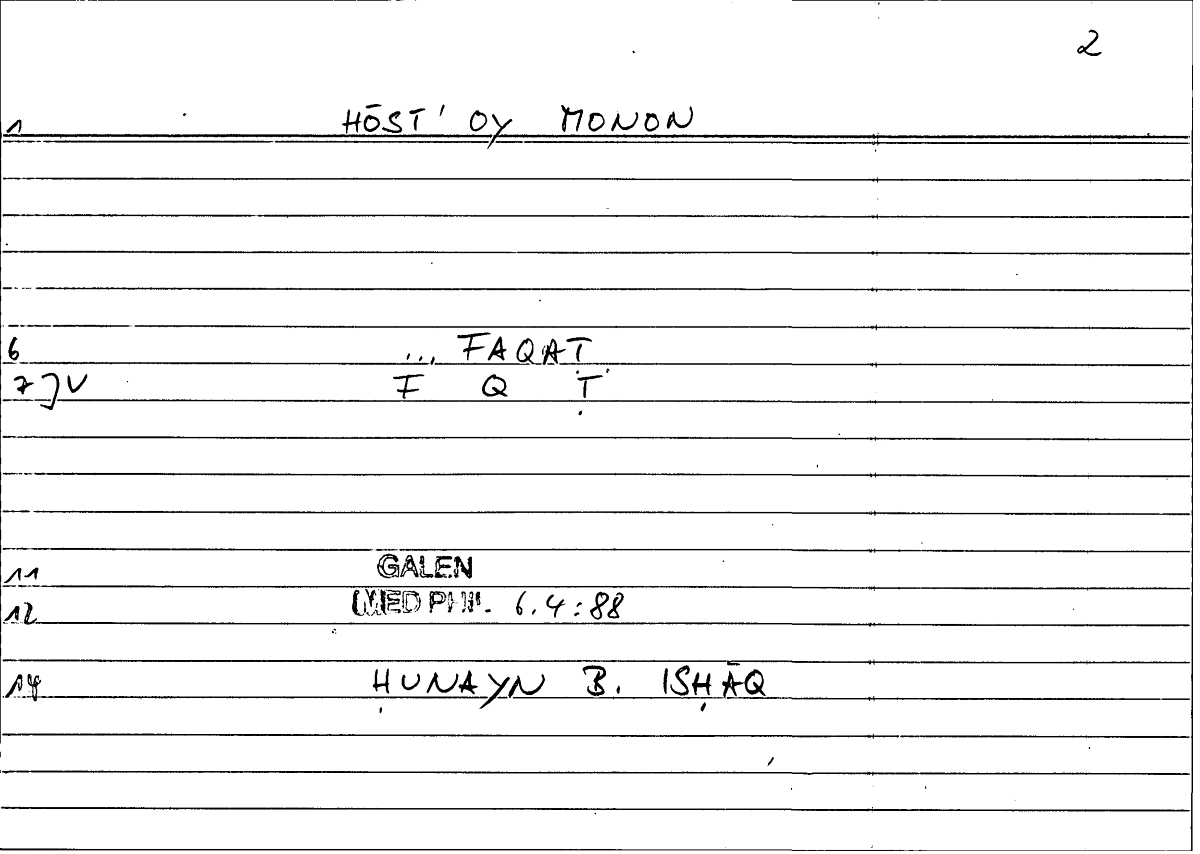 2
1 HŌST' OY MONON
6 ... FAQAṬ
7 ] V F Q Ṭ
11 GALEN
12 MED PHIL. 6.4:88
14 ḤUNAYN B. ISḤĀQ